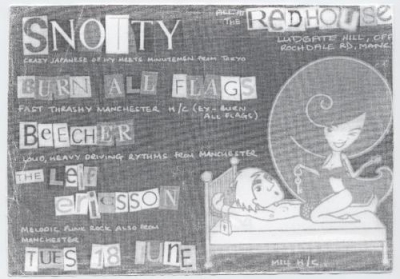 SNOTTY
CRAZY JAPANESE OI IVY MEETS MINUTEMEN FROM TOKYO
ALL AT THE REDHOUSE
LUDGATE HILL, OFF
ROCHDALE RD, MANC
BURN ALL FLAGS
FAST THRASHY MANCHESTER H/C (EX-BURN
ALL FLAGS)
BEECHER
LOUD, HEAVY DRIVING RYTHMS FROM MANCHESTER
THE LEIF
ERICSSON
MELODIC PUNK ROCK ALSO FROM
MANCHESTER
TUES 18 JUNE
H/C